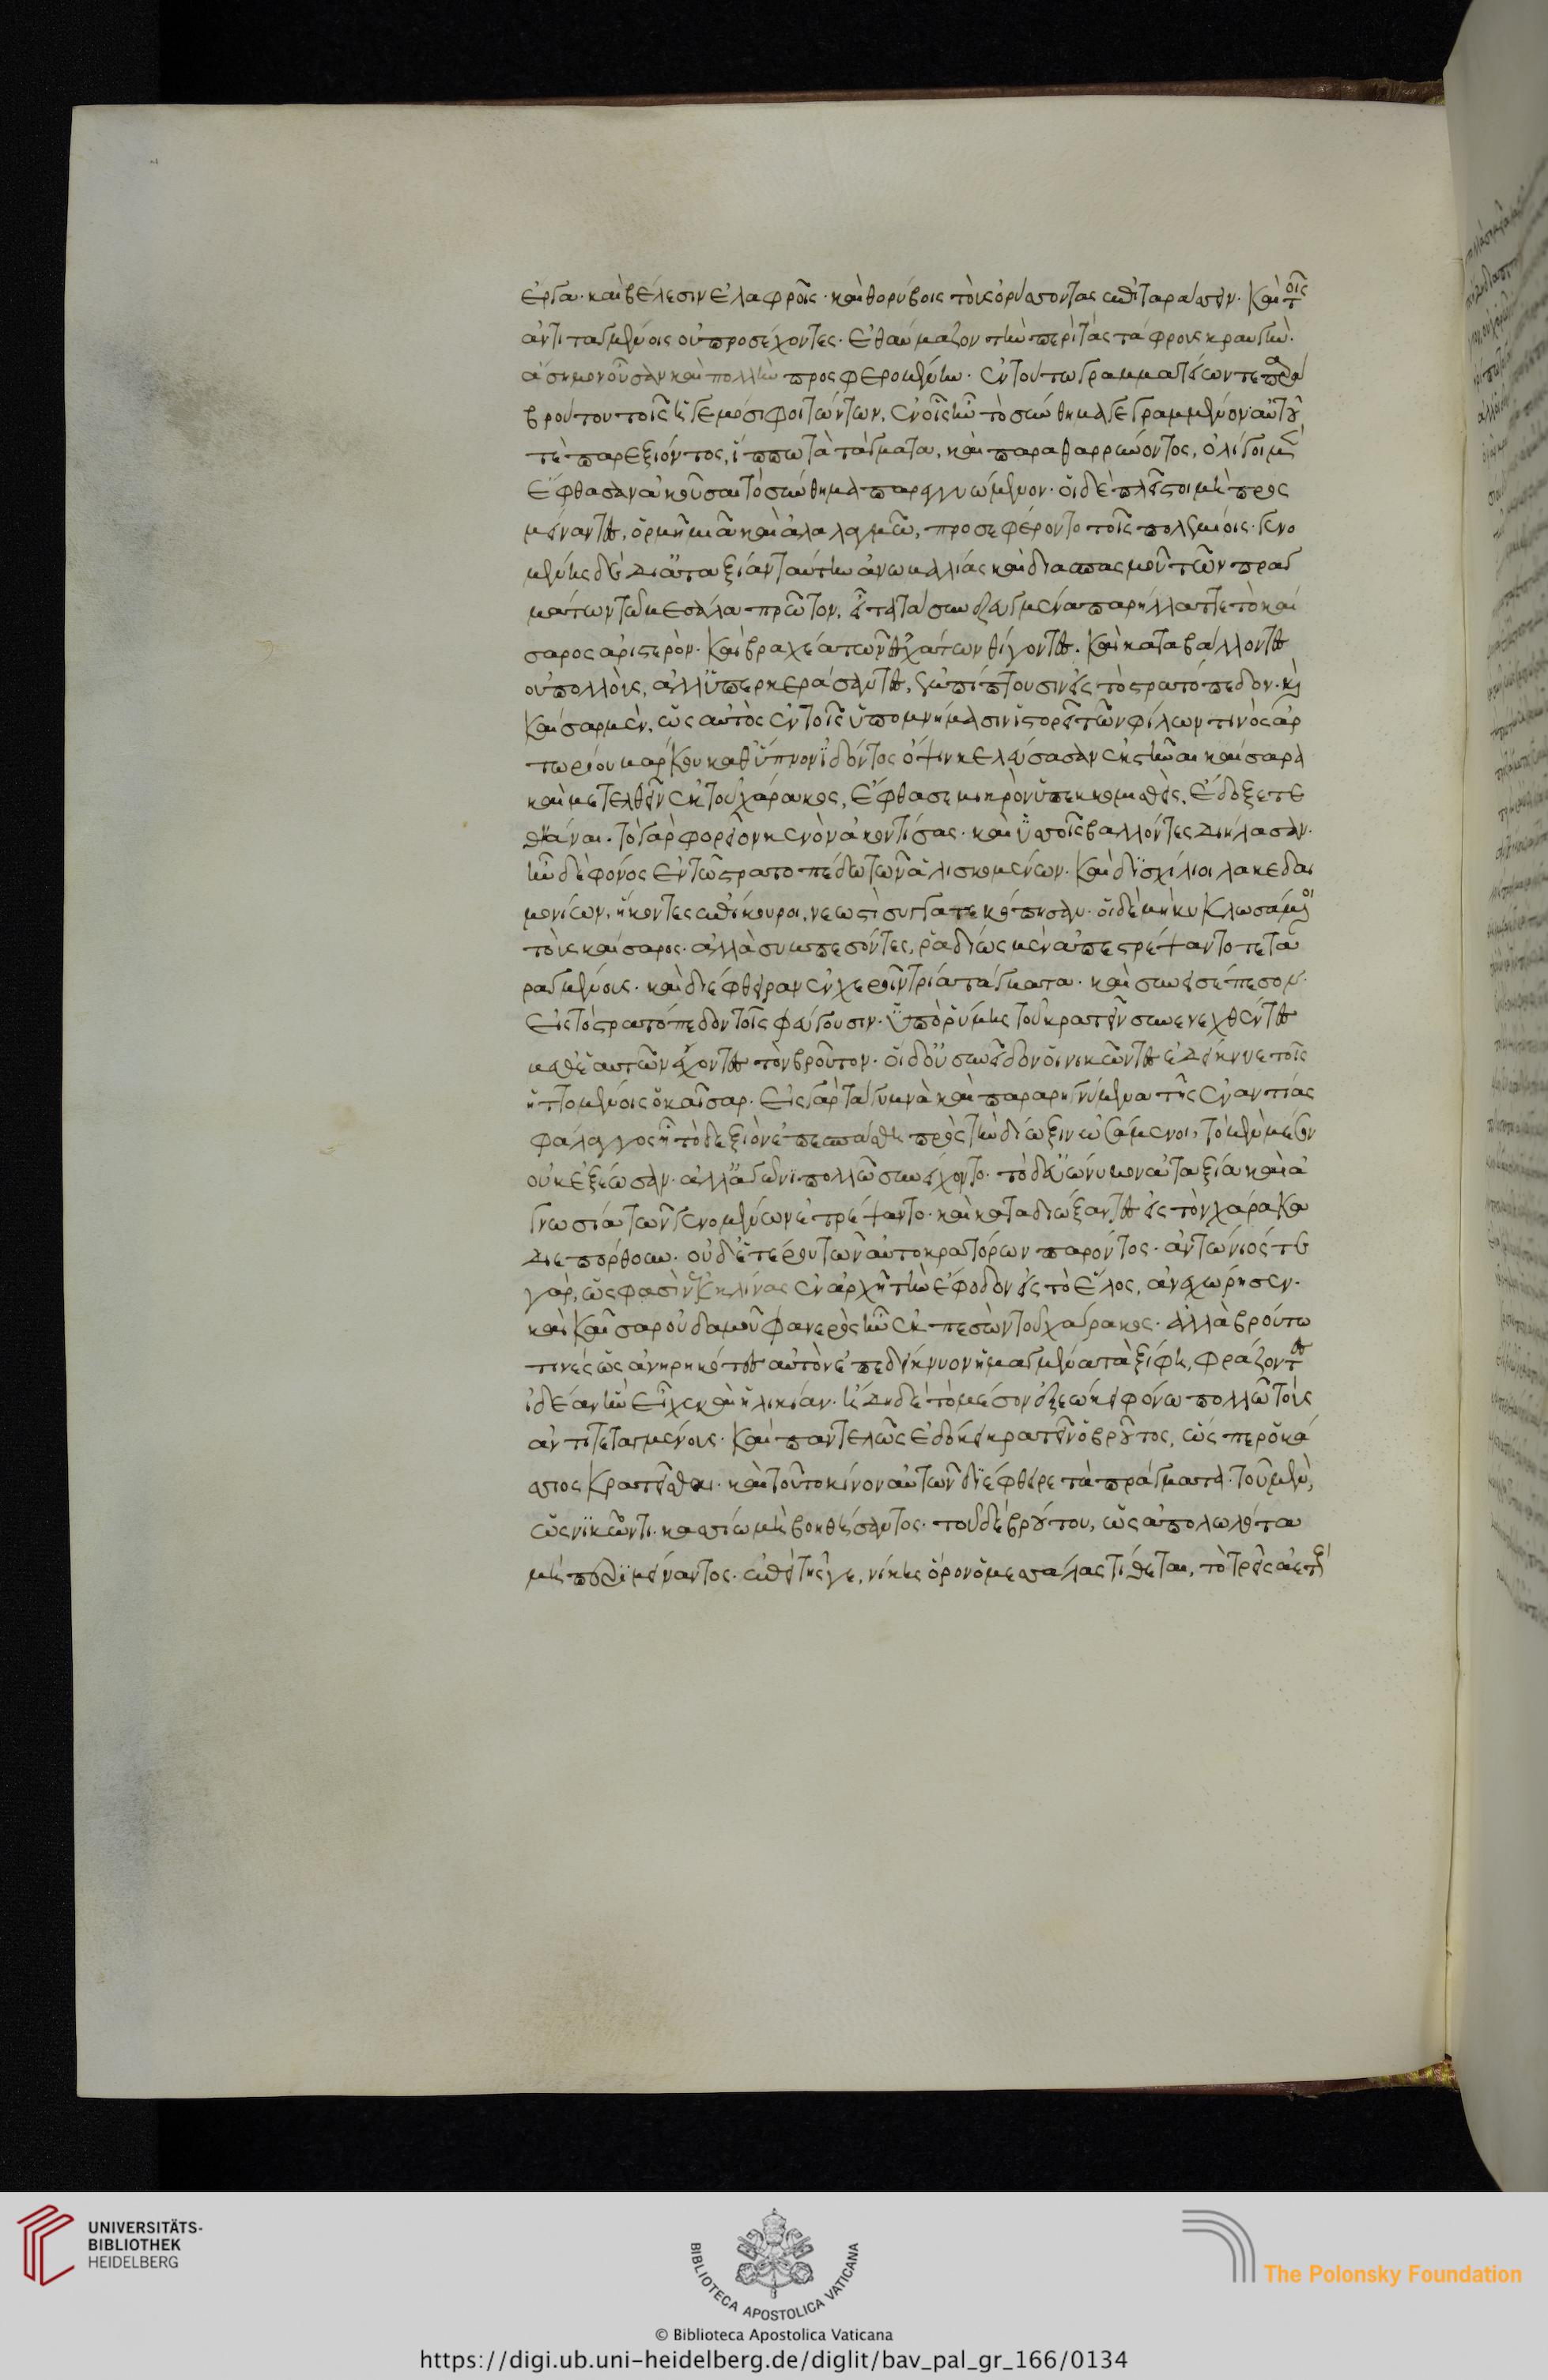 ἔργα· καὶ βέλεσιν ἐλαφροῖς· καὶ θορύβοις τοὺς ὀρύσσοντας ἐπιταράσσειν. Καὶ τοῖς
ἀντιταγμένοις οὐ προσέχοντες· ἐθαύμαζον τὴν περὶ τὰς τάφρους κραυγὴν.
ἄσημον οὖσαν καὶ πολλὴν προσφερομένην. ἐν τούτω γραμματείων τε παρὰ
βρούτου τοῖς ἡγεμόσι φοιτώντων, ἐν οἷς ἦν τὸ σύνθημα γεγραμμένον· αὐτοῦ
τὲ παρεξιόντος, ἵππω τὰ τάγματα, καὶ παραθαρρύνοντος, ὀλίγοι μὲν
ἔφθασαν ἀκοῦσαι τὸ σύνθημα παρεγγυώμενον. οἱ δὲ πλεῖστοι μὴ προς
μείναντες, ὁρμῆ μιᾶ καὶ ἀλαλαγμῶ, προσεφέροντο τοῖς πολεμίοις. γενο
μένης δὲ δι' ἀταξίαν ταύτην ἀνωμαλίας καὶ διασπασμοῦ τῶν πραγ
μάτων τῶ μεσάλα πρῶτον, εἶτα τὰ συνεζευγμένα παρήλλαττε τὸ καί
σαρος ἀριστερόν. Καὶ βραχέα τῶν ἐσχάτων θίγοντες. Καὶ καταβάλλοντες
οὐ πολλοὺς, ἀλλ' ὑπερκεράσαντες, ἐμπίπτουσιν εἰς τὸ στρατόπεδον. καὶ
Καῖσαρ μὲν, ὡς αὐτὸς ἐν τοῖς ὑπομνήμασιν ἱστορεῖ τῶν φίλων τινὸς ἀρ
τωρίου μάρκου καθ' ὕπνον ἰδόντος ὄψιν κελεύσασαν ἐκστῆναι καίσαρα
καὶ μετελθεῖν ἐκ τοῦ χάρακος, ἔφθασε μικρὸν ὑπεκκομισθεὶς, ἔδοξε τε
θνάναι. τὸ γὰρ φορεῖον κενὸν ἀκοντίσας· καὶ ὑσσοῖς βαλλόντες διήλασαν.
ἦν δὲ φόνος ἐν τῶ στρατοπέδω τῶν ἁλισκομένων. Καὶ δισχίλιοι λακεδαι
μονίων, ἥκοντες ἐπίκουροι, νεωστὶ συγκατεκόπησαν. οἱ δὲ μὴ κυκλωσάμενοι
τοὺς καίσαρος· ἀλλὰ συμπεσόντες, ῥαδίως μὲν ἀπεστρέψαντο τετα
ραγμένους. καὶ διέφθειραν ἐν χερσὶν τρία τάγματα. καὶ συνεισέπεσον
εἰς τὸ στρατόπεδον τοῖς φεύγουσιν. ὑπὸ ῥύμης τοῦ κρατεῖν συνενεχθέντες
μεθ' ἑαυτῶν ἔχοντες τὸν βροῦτον. οἱ δ' οὐ συνεῖδον οἱ νικῶντες ἐδείκνυε τοῖς
ἡττομένοις ὁ καῖσαρ. εἰς γὰρ τὰ γυμνὰ καὶ παραρηγνύμενα τῆς ἐναντίας
φάλαγγος ἧ τὸ δεξιὸν ἐπεσπάσθη πρὸς τὴν δίωξιν ὠσάμενοι, τὸ μὲν μέσον
οὐκ ἐξέωσαν· ἀλλ' ἀγῶνι πολλῶ συνείχοντο. τὸ δ' εὐώνυμον ἀταξία καὶ ἀ
γνωσία τῶν γενομένων ἐτρέψαντο. καὶ καταδιώξαντες εἰς τὸν χάρακα
διεπόρθουν. οὐδετέρου τῶν αὐτοκρατόρων παρόντος. ἀντώνιός τε
γὰρ, ὥς φασὶν ἐκκλίνας ἐν ἀρχῆ τὴν ἔφοδον εἰς τὸ ἕλος, ἀνεχώρησεν.
καὶ Καῖσαρ οὐδαμοῦ φανερὸς ἦν ἐκπεσὼν τοῦ χάρακος. ἀλλὰ βρούτω
τινές ὡς ἀνηρηκότες αὐτὸν ἐπεδείκνυον ἡμαγμένα τὰ ξίφη, φράζοντες
ἰδέαν ἣν εἶχε καὶ ἡλικίαν. ἤδη δὲ τὸ μέσον ἐξεώκει φόνω πολλῶ τοὺς
ἀντιτεταγμένους. Καὶ παντελῶς ἐδόκει κρατεῖν ὁ βροῦτος, ὥς περ ὁ κά
σσιος κρατεῖσθαι. καὶ τοῦτο κίνον αὐτῶν διέφθειρε τὰ πράγματα. τοῦ μὲν,
ὡς νικῶντι κασσίω μὴ βοηθήσαντος· τοῦ δὲ βρούτου, ὡς ἀπολωλότα
μὴ περιμείναντος. ἐπεὶ τῆς γε, νίκης ὅρον ὁ μεσσάλας τίθεται, τὸ τρεῖς ἀετοὺς
UNIVERSITÄTS-
BIBLIOTHEK
HEIDELBERG
BIBLIOTECA APOSTOLICA VATICANA
The Polonsky Foundation
© Biblioteca Apostolica Vaticana
https://digi.ub.uni-heidelberg.de/diglit/bav_pal_gr_166/0134